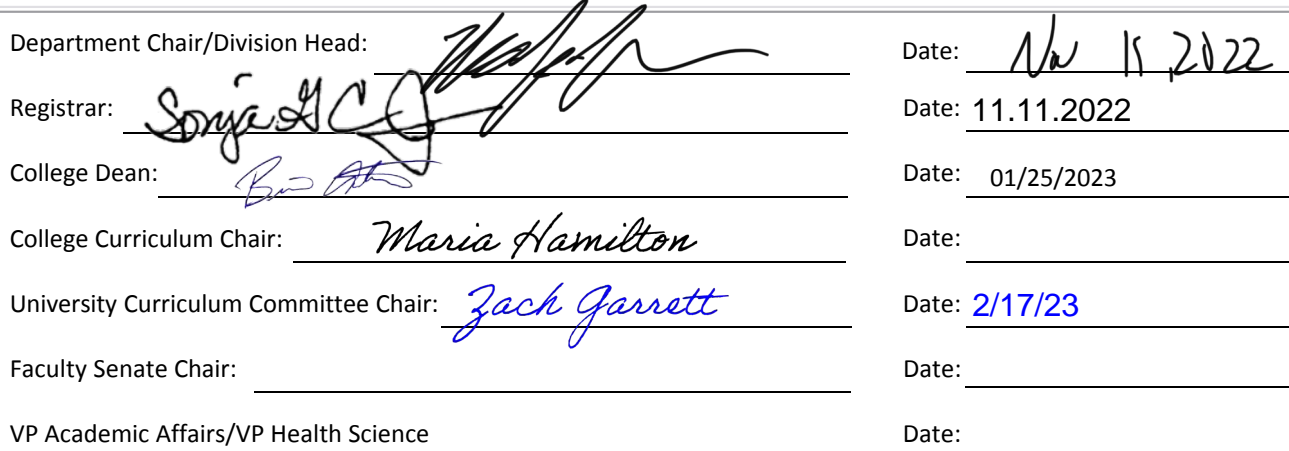 Department Chair/Division Head: Date: 2022
Registrar: Sonja G C Date: 11.11.2022
College Dean: Date: 01/25/2023
College Curriculum Chair: Maria Hamilton Date:
University Curriculum Committee Chair: Zach Garrett Date: 2/17/23
Faculty Senate Chair: Date:
VP Academic Affairs/VP Health Science Date: